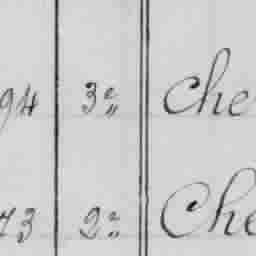 94 3e„ Che
73 2e„ Che